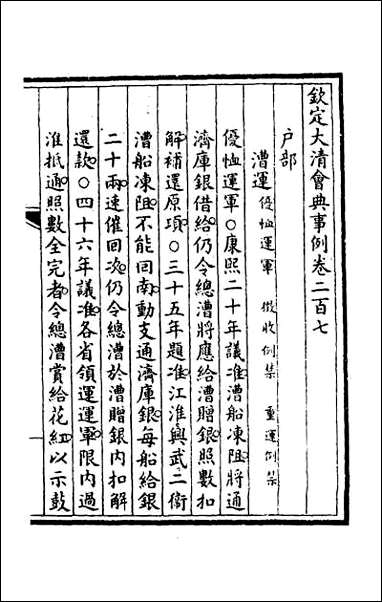 欽定大清會典事例卷二百七
户部
漕運優恤運軍 徵收例禁 重運例禁
優恤運軍○康熙二十年議准漕船凍阻將通
濟庫銀借給仍令總漕將應給漕贈銀照數扣
解補還原項○三十五年題准江淮興武二衞
漕船凍阻不能回南動支通濟庫銀每船給銀
二十兩速催回次仍令總漕於漕贈銀内扣解
還款○四十六年議准各省領運運軍限内過
淮抵通照數全完者令總漕賞給花紅以示鼓